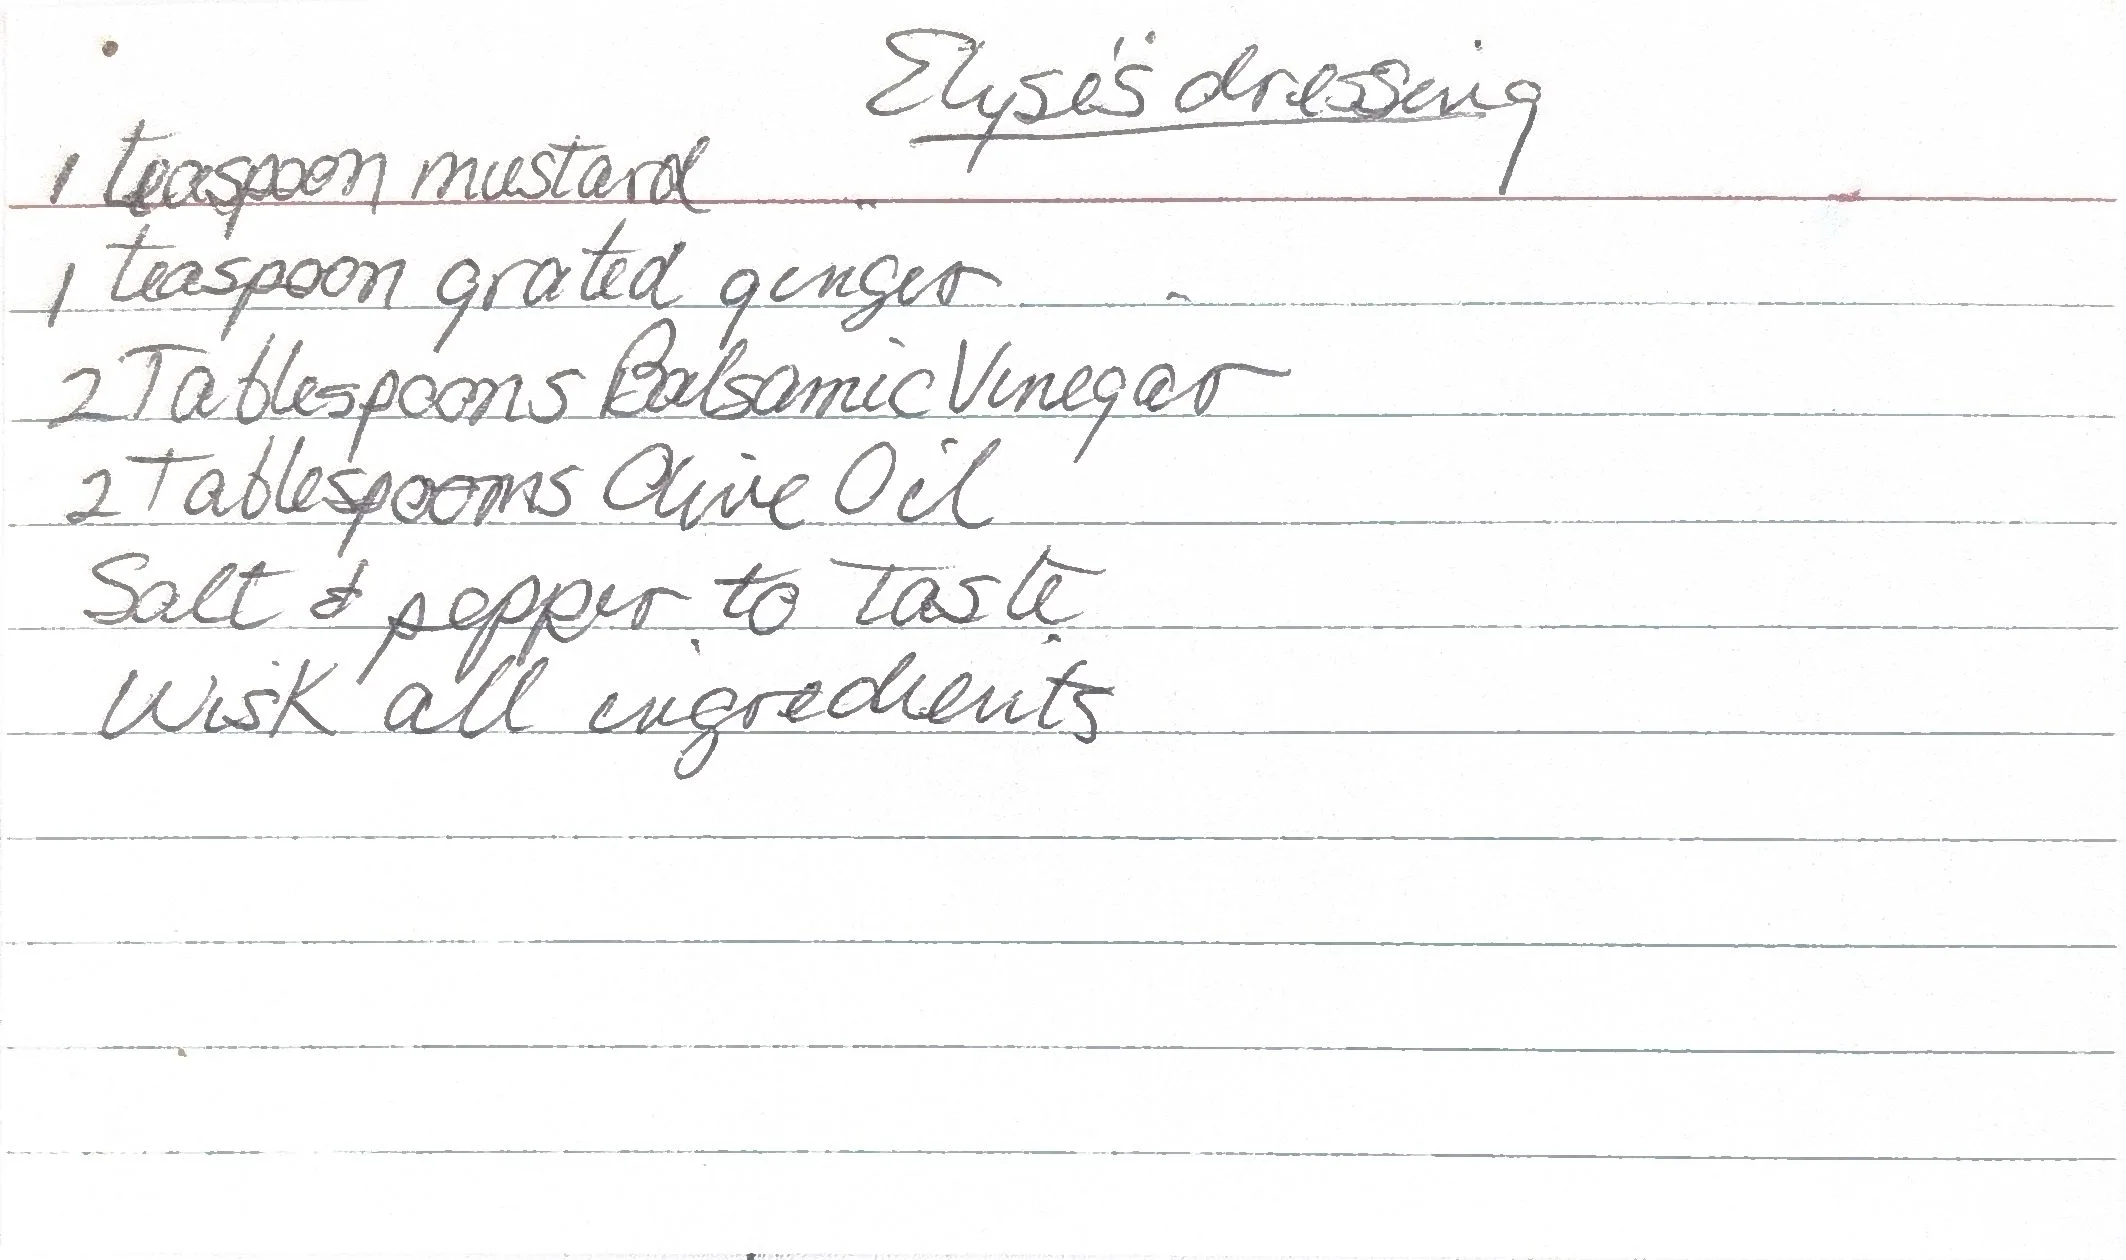 Elyse's dressing
1 teaspoon mustard
1 teaspoon grated ginger
2 Tablespoons Balsamic Vinegar
2 Tablespooms Olive Oil
Salt & pepper to Taste
Wisk all ingredients